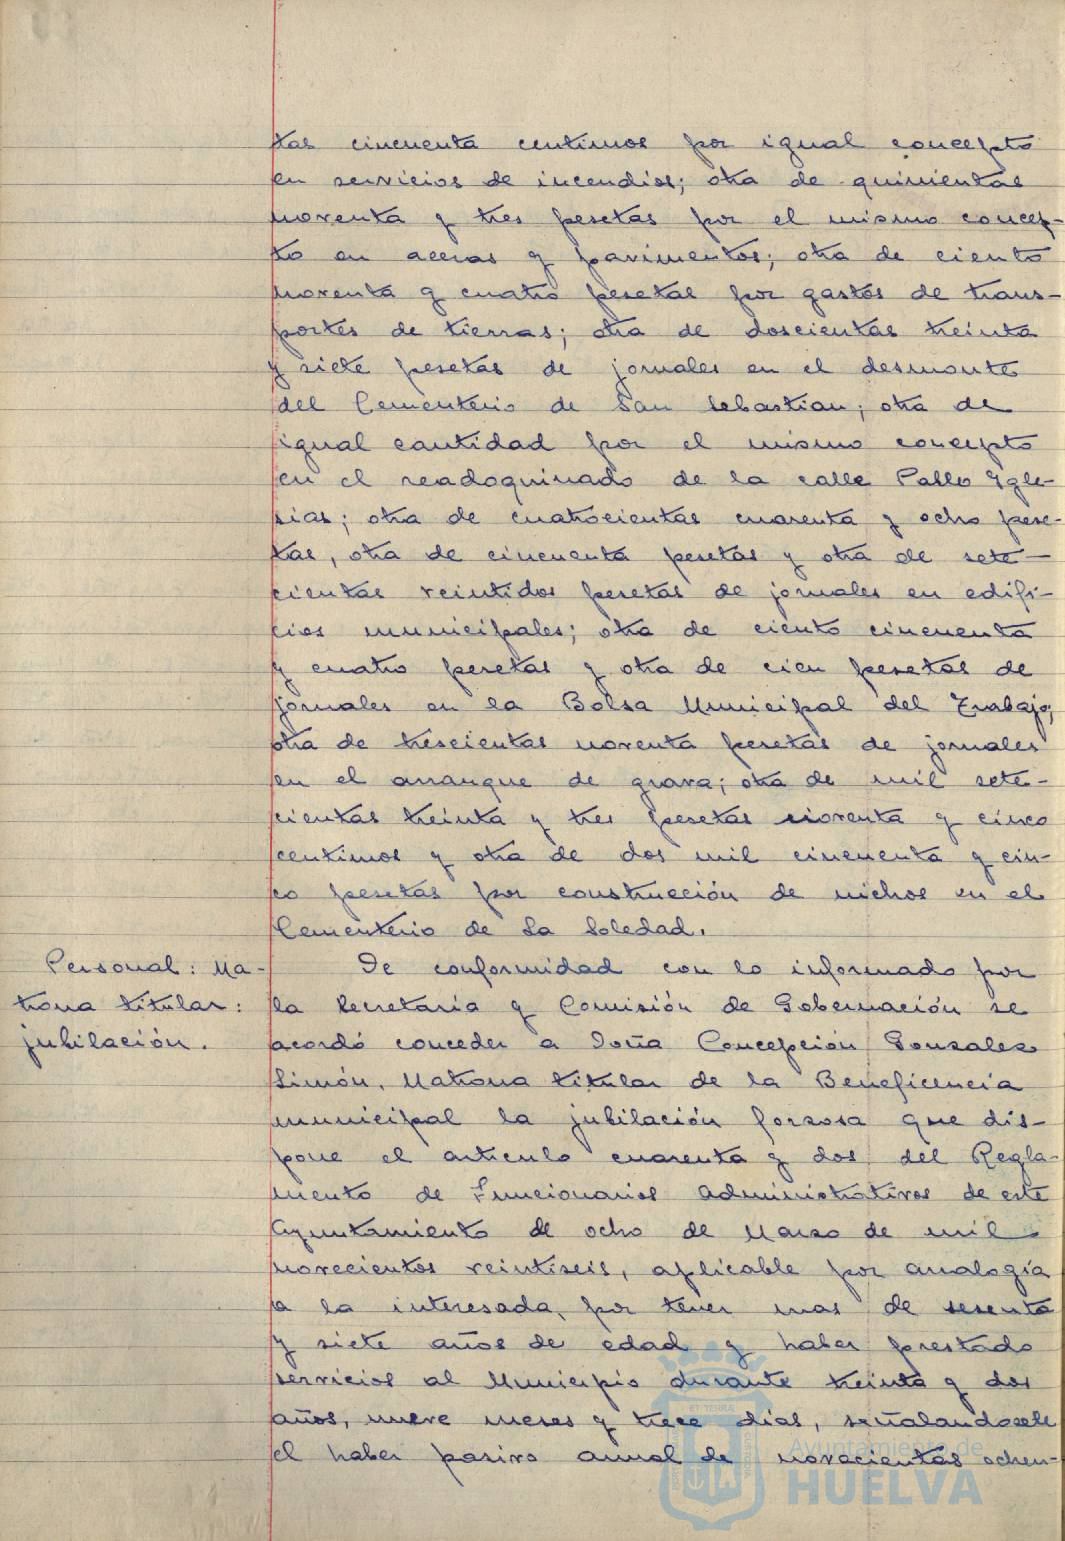 tas cincuenta centimos por igual concepto
en servicios de incendios; otra de quinientas
noventa y tres pesetas por el mismo concep-
to en aceras y pavimentos; otra de ciento
noventa y cuatro pesetas por gastos de trans-
portes de tierras; otra de doscientas treinta
y siete pesetas de jornales en el desmonte
del Cementerio de San Sebastian; otra de
igual cantidad por el mismo concepto
en el readoquinado de la calle Pablo Igle-
sias; otra de cuatrocientas cuarenta y ocho pese-
tas, otra de cincuenta pesetas y otra de sete-
cientas veintidos pesetas de jornales en edifi-
cios municipales; otra de ciento cincuenta
y cuatro pesetas y otra de cien pesetas de
jornales en la Bolsa Municipal del Trabajo;
otra de trescientas noventa pesetas de jornales
en el arranque de grava; otra de mil sete-
cientas treinta y tres pesetas noventa y cinco
centimos y otra de dos mil cincuenta y cin-
co pesetas por construcción de nichos en el
Cementerio de La Soledad.
Personal: Ma-
trona titular:
jubilación.
De conformidad con lo informado por
la Secretaría y Comisión de Gobernación se
acordó conceder a Doña Concepción Gonzalez
Simón, Matrona titular de la Beneficencia
municipal la jubilación forzosa que dis-
pone el articulo cuarenta y dos del Regla-
mento de Funcionarios Administrativos de este
Ayuntamiento de ocho de Marzo de mil
novecientos veintiseis, aplicable por analogía
a la interesada, por tener mas de sesenta
y siete años de edad y haber prestado
servicios al Municipio durante treinta y dos
años, nueve meses y trece días, señalandosele
el haber pasivo anual de novecientas ochen-
Ayuntamiento de
HUELVA